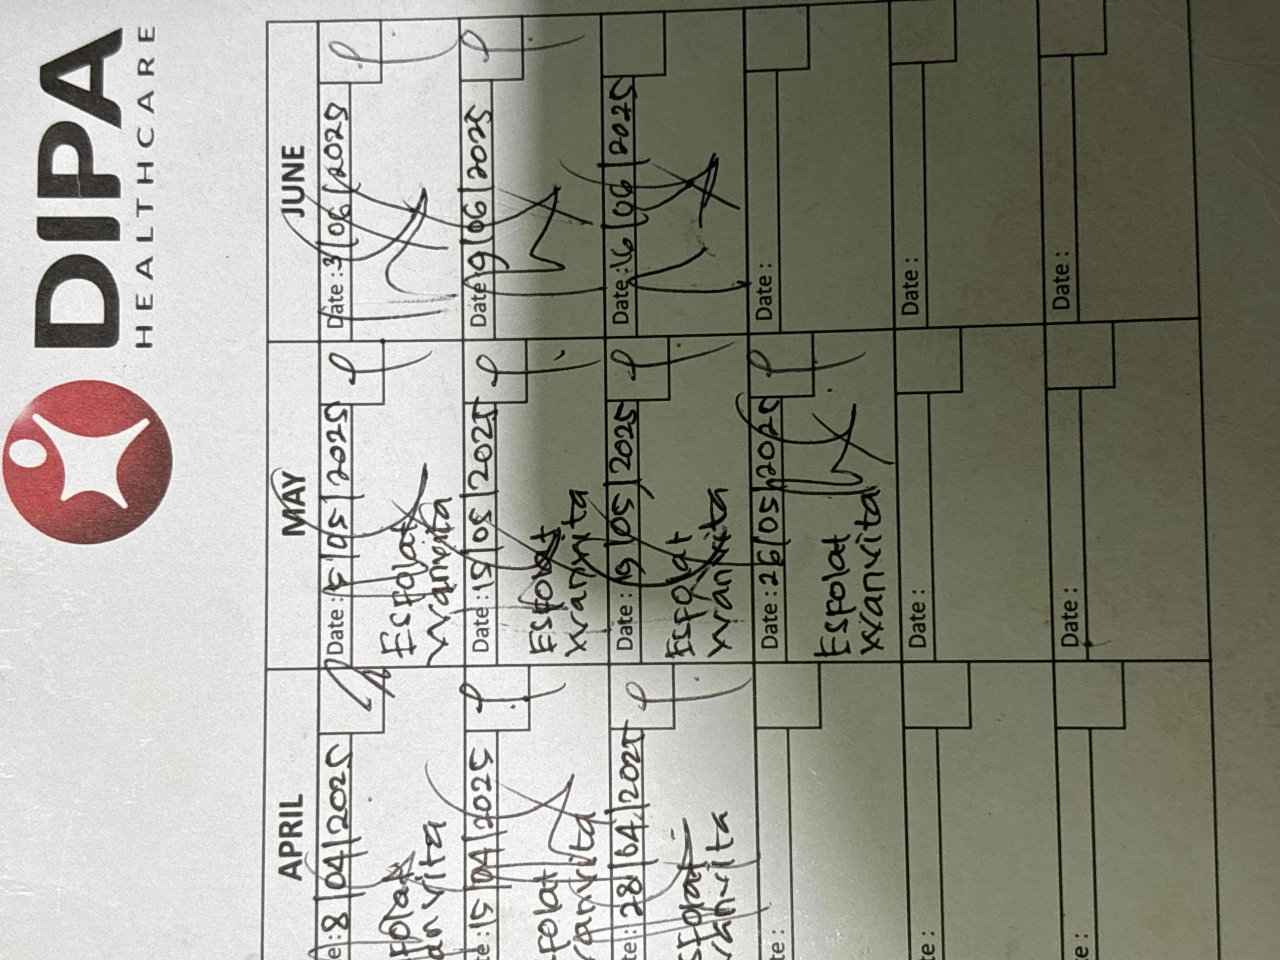 DIPA
HEALTHCARE
APRIL
MAY
JUNE
e: 8/04/2025
Date: 5/05/2025
Date: 3/06/2025
sfolat
anvita
Esfolat
xxanvita
te: 15/04/2025
Date: 15/05/2025
Date: 9/06/2025
sfolat
xanvita
Esfolat
xxanvita
te: 28/04/2025
Date: 19/05/2025
Date: 16/06/2025
sfolat
xanvita
Esfolat
xxanvita
te:
Date: 26/05/2025
Date:
Esfolat
xxanvita
te:
Date:
Date:
te:
Date:
Date: